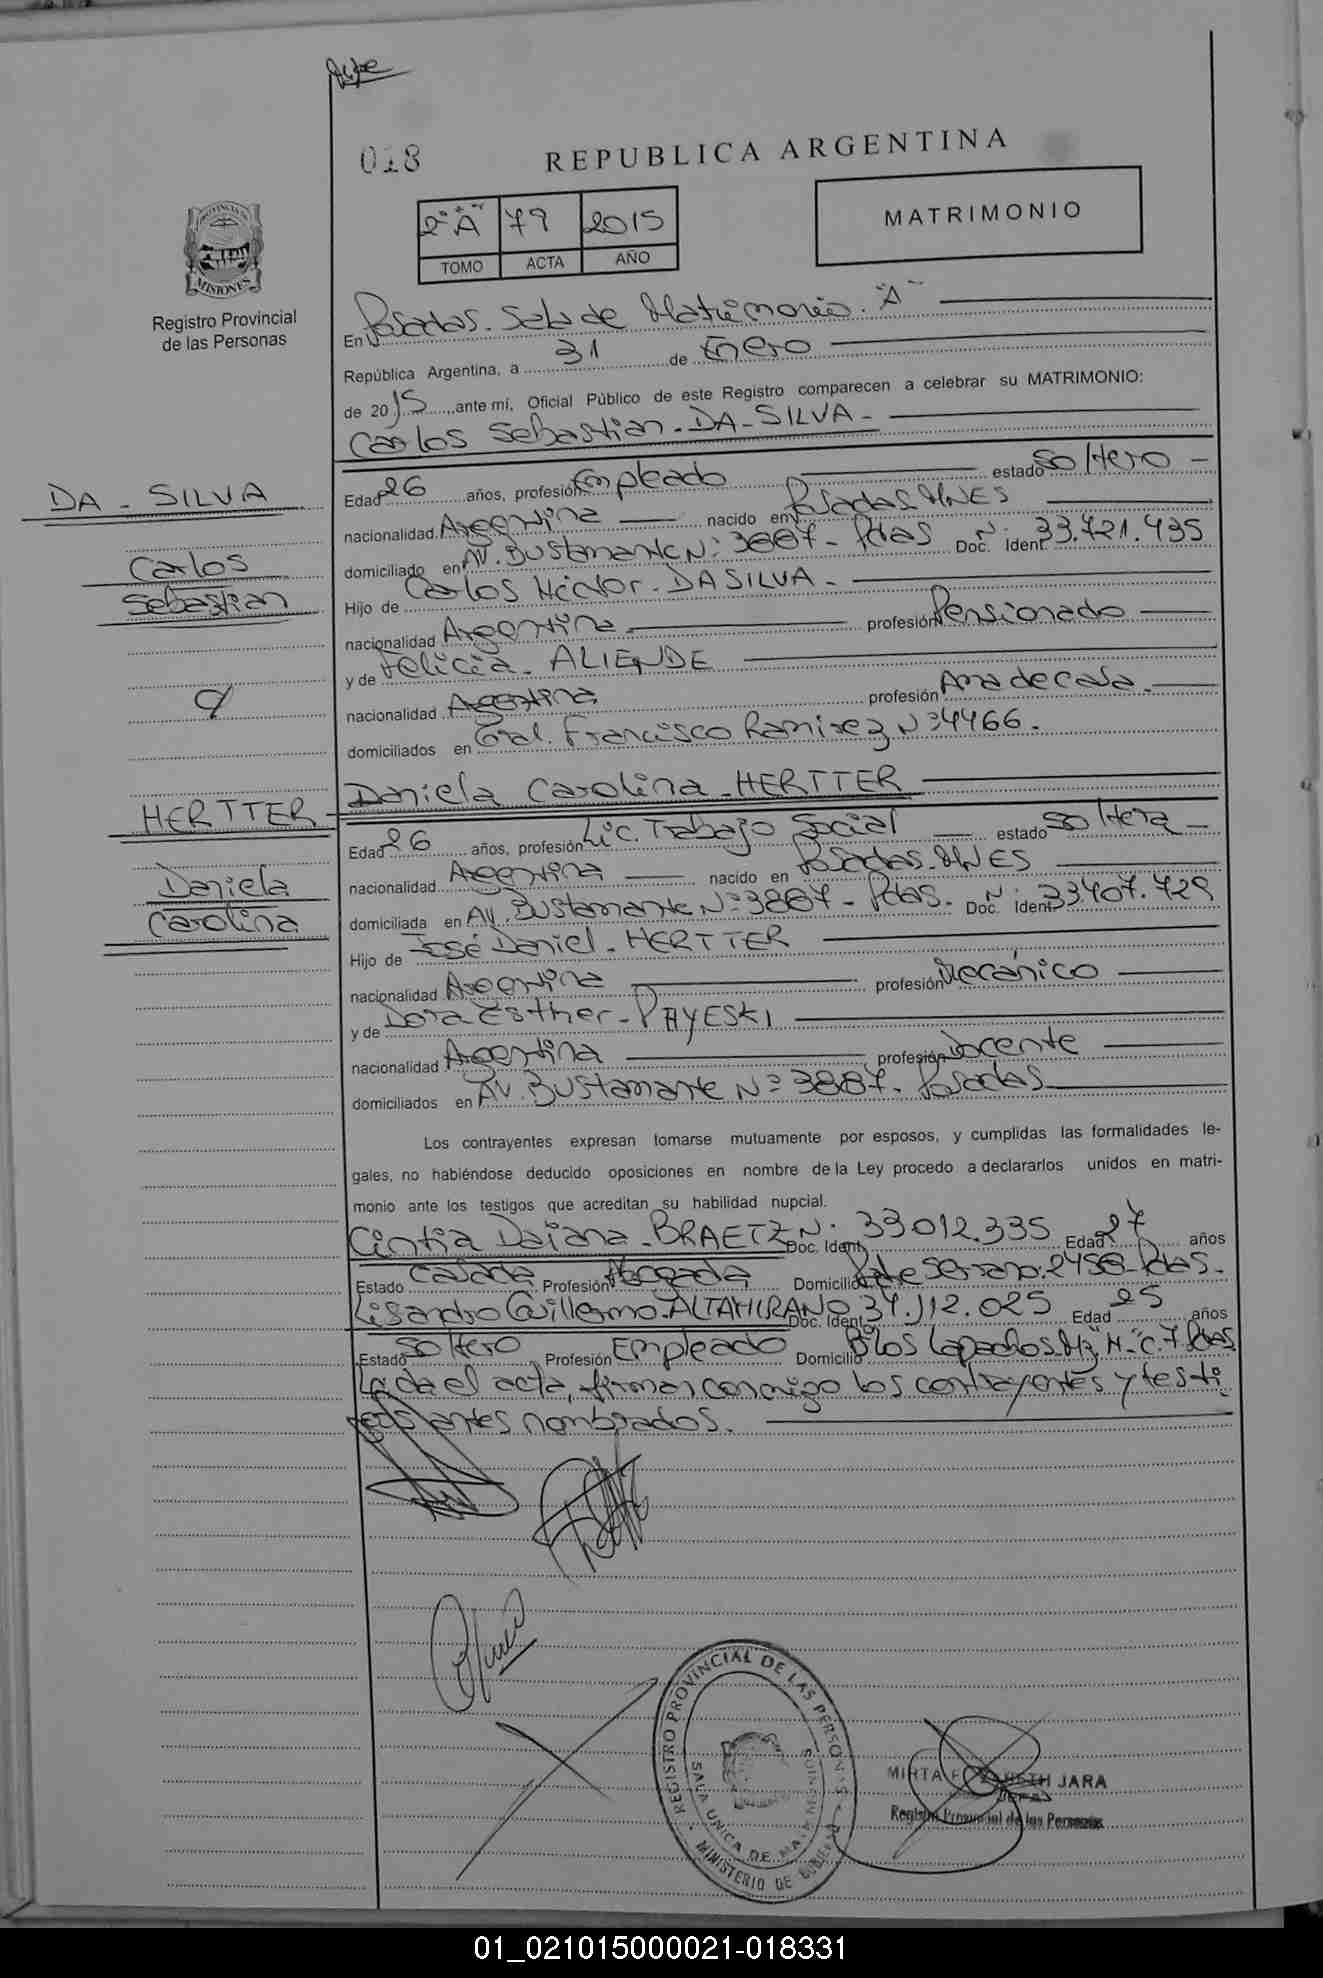 018
REPUBLICA ARGENTINA
2º "A" 79 2015
TOMO ACTA AÑO
MATRIMONIO
PROVINCIA DE
MISIONES
Registro Provincial
de las Personas
En Posadas. Sala de Matrimonio. "A"
República Argentina, a 31 de Enero
de 2015 ante mí, Oficial Público de este Registro comparecen a celebrar su MATRIMONIO:
Carlos Sebastian - DA - SILVA -
DA - SILVA
Carlos
Sebastian
Edad 26 años, profesión Empleado estado Soltero -
nacionalidad Argentina nacido en Posadas. MNES
domiciliado en AV. Bustamante Nº 3887 - Pdas Doc. Ident. Nº 33.721.935
Hijo de Carlos Héctor - DA SILVA -
nacionalidad Argentina profesión Pensionado
y de Felicia - ALIENDE
nacionalidad Argentina profesión Ama de casa.
domiciliados en Gral. Francisco Ramirez Nº 4466.
HERTTER
Daniela
Carolina
Daniela Carolina - HERTTER
Edad 26 años, profesión Lic. Trabajo Social estado Soltera
nacionalidad Argentina nacido en Posadas. MNES
domiciliada en AV. Bustamante Nº 3887 - Pdas. Doc. Ident. Nº 33.407.729
Hijo de José Daniel - HERTTER
nacionalidad Argentina profesión Mecánico
y de Dora Esther - PAYESKI
nacionalidad Argentina profesión Docente
domiciliados en AV. Bustamante Nº 3887. Posadas
Los contrayentes expresan tomarse mutuamente por esposos, y cumplidas las formalidades le-
gales, no habiéndose deducido oposiciones en nombre de la Ley procedo a declararlos unidos en matri-
monio ante los testigos que acreditan su habilidad nupcial.
Cintia Daiana - BRAETZ Doc. Ident. Nº 33.012.335 Edad 27 años
Estado Casada Profesión Abogada Domicilio Pdte Serrano. 2458 - Pdas.
Lisandro Guillermo. ALTAMIRANO Doc. Ident. 34.112.025 Edad 25 años
Estado Soltero Profesión Empleado Domicilio Bº los Lapachos. Mz "H - C. 7 Pdas
Leída el acta, firman conmigo los contrayentes y testi
gos antes nombrados.
REGISTRO PROVINCIAL DE LAS PERSONAS
SALA UNICA DE MATRIMONIOS
MINISTERIO DE GOBIERNO
MIRTA JARA
Registro Provincial de las Personas
01_021015000021-018331